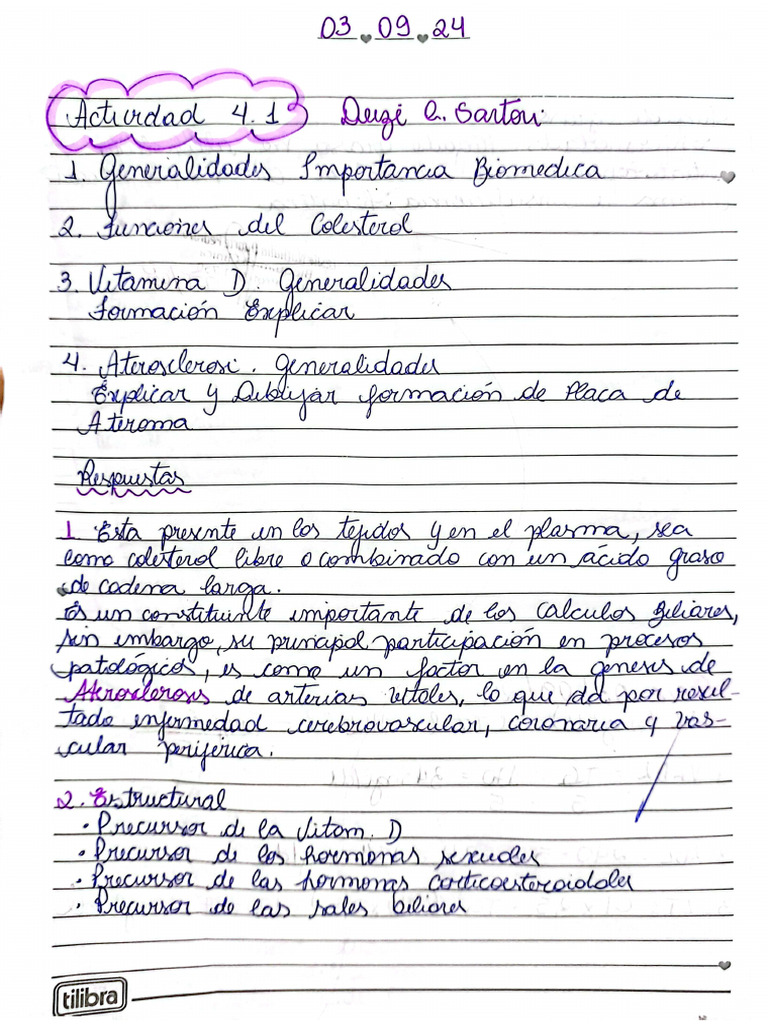 03.09.24
Actividad 4.1 Deizi C. Sartori
1. Generalidades Importancia Biomedica
2. Funciones del Colesterol
3. Vitamina D. Generalidades
Formación Explicar
4. Aterosclerosi. Generalidades
Explicar y Dibujar formación de Placa de
Ateroma
Respuestas
1 Esta presente en los tejidos y en el plasma, sea
como colesterol libre o combinado con un ácido graso
de cadena larga.
Es un constituinte importante de los calculos biliares,
sin embargo, su principal participación en procesos
patológicos, es como un factor en la genesis de
Aterosclerosis de arterias vitales, lo que da por resul-
tado enfermedad cerebrovascular, coronaria y vas-
cular periferica.
2. Estructural
• Precursor de la Vitam. D
• Precursor de los hormonas sexuales
• Precursor de las hormonas corticoesteroidales
• Precursor de las sales biliares
tilibra